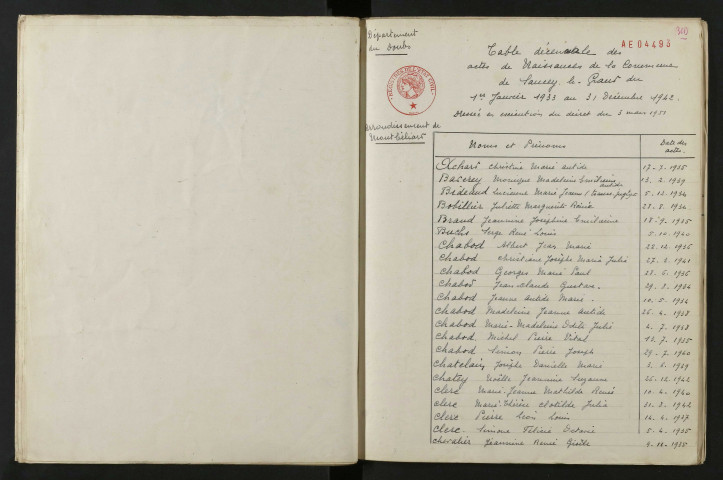 310
AE 04493
Département
du Doubs
Table décennale des
actes de Naissances de la Commune
de Sancey-le-Grand du
1er Janvier 1933 au 31 Décembre 1942.
Dressé en exécution du décret du 3 mars 1951
Arrondissement de
Montbéliard
Noms et Prénoms Date des actes.
Achard Christine Marie antide 17-3-1935
Monique Madeleine 13.2-1939
Bideaud Lucienne Marie Jeanne 5-12-1934
Bobillier Juliette Marguerite Renée 28-8-1934
Braud Jeannine Joséphine 18-9-1935
Buchs Serge René Louis 5-10-1940
Chabod Albert Jean Marie 28-12-1936
Chabod Christiane Josèphe Marie Julie 27-8-1941
Chabod Georges Marie Paul 23-5-1936
Chabod Jean-Claude Gustave. 29-8-1934
Chabod Jeanne antide Marie. 10-5-1934
Chabod Madeleine Jeanne antide 26-4-1938
Chabod Marie-Madeleine Odile Julie 4-7-1938
Chabod Michel Pierre Vital 12-7-1935
Chabod Simon Pierre Joseph 29-7-1940
Chatelain Josèphe Danielle Marie 3-6-1939
Chatey Noëlle Jeannine Suzanne 25-12-1942
Clerc Marie-Jeanne Mathilde Renée 10-4-1940
Clerc Marie-Thérèse Clotilde Julie 31-3-1942
Clerc Pierre Léon Louis 14-4-1937
Clerc- Simone Octavie 5-4-1935
Chevalier Jeannine Renée Gisèle 9-11-1935